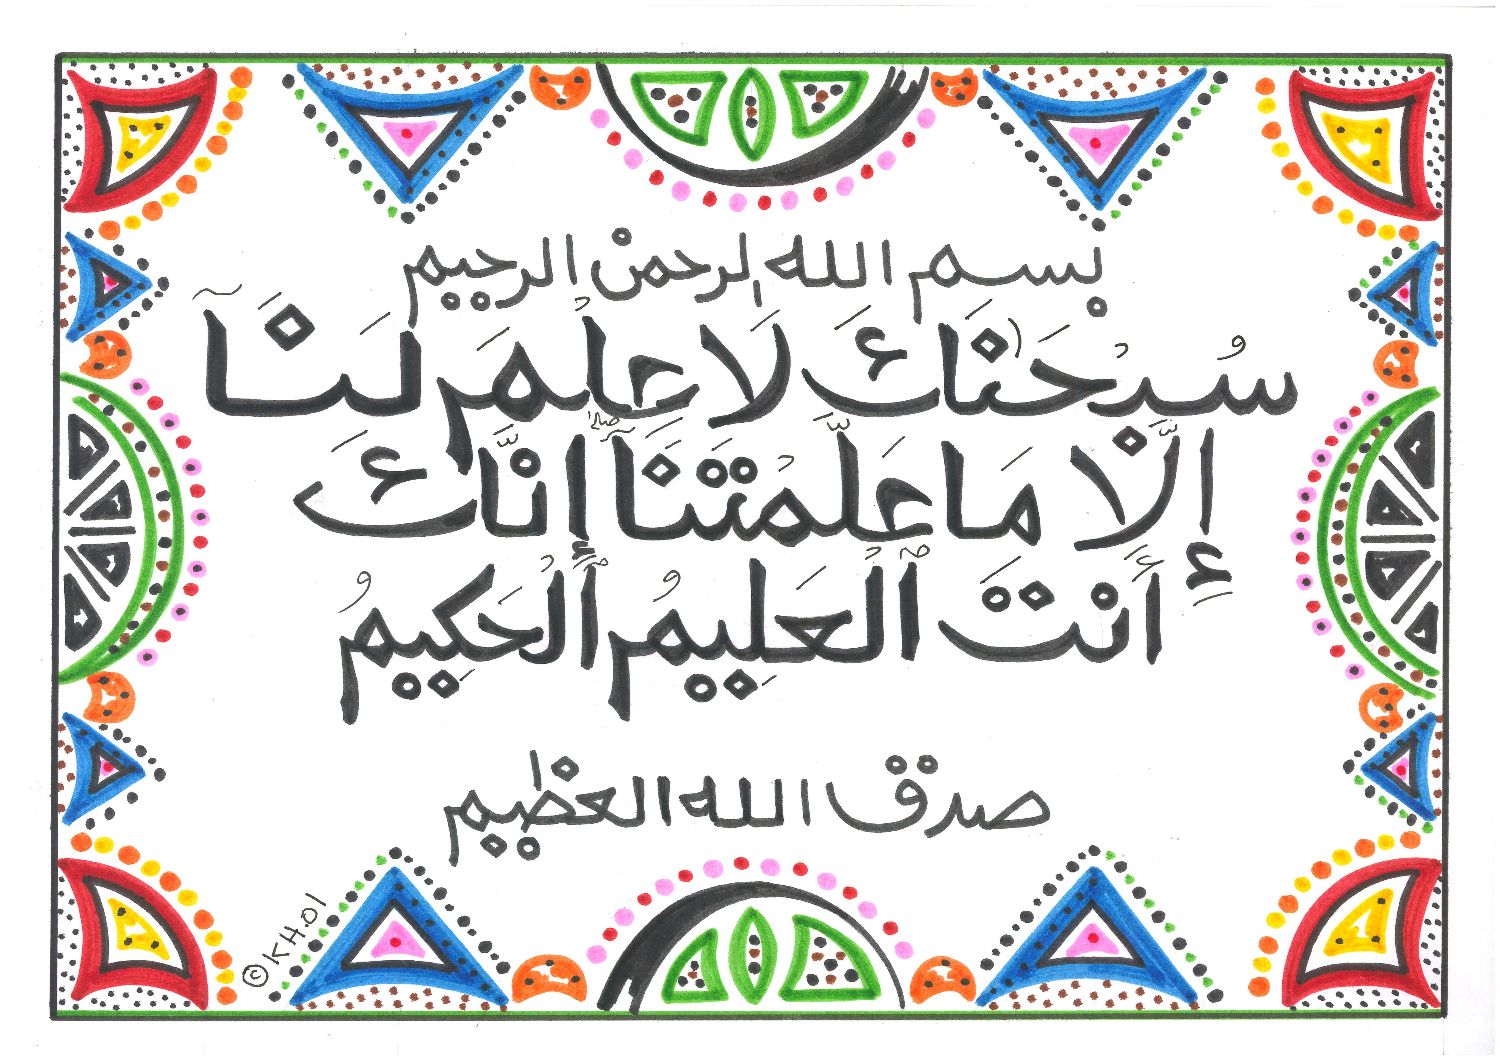 بسم الله الرحمن الرحيم
سُبْحَٰنَكَ لَا عِلْمَ لَنَآ
إِلَّا مَا عَلَّمْتَنَآ ۖ إِنَّكَ
أَنتَ ٱلْعَلِيمُ ٱلْحَكِيمُ
صدق الله العظيم
©KH.01